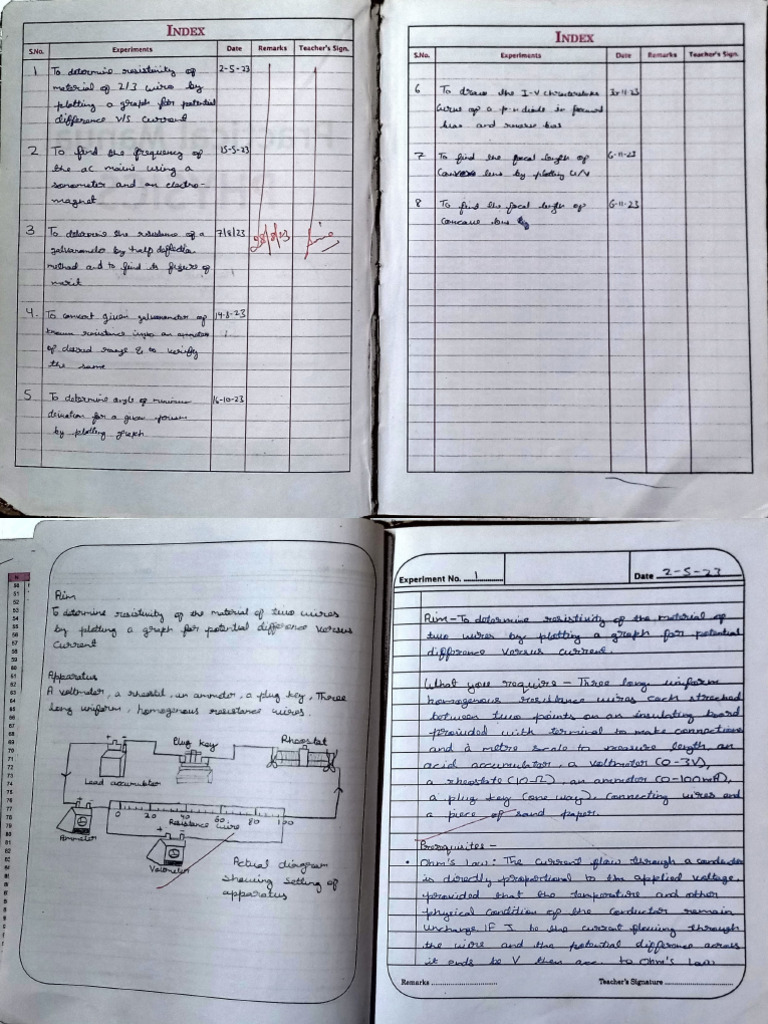 INDEX
S.No. Experiments Date Remarks Teacher's Sign.
1 To determine resistivity of 2-5-23
material of 2/3 wire by
plotting a graph for potential
difference V/S current
2 To find the frequency of 15-5-23
the AC mains using a
sonometer and an electro-
magnet
3 To determine the resistance of a 7/8/23 28/8/23
galvanometer by half deflection
method and to find its figure of
merit
4. To convert given galvanometer of 14-8-23
known resistance into an ammeter
of desired range & to verify
the same
5 To determine angle of minimum 16-10-23
deviation for a given prism
by plotting graph
INDEX
S.No. Experiments Date Remarks Teacher's Sign.
6 To draw the I-V characteristics
curve of a p-n diode in forward
bias and reverse bias
7 To find the focal length of 6-11-23
Convex lens by plotting u/v
8 To find the focal length of 6-11-23
concave lens by
Aim
To determine resistivity of the material of two wires
by plotting a graph for potential difference versus
current
Apparatus
A voltmeter, a rheostat, an ammeter, a plug key, Three
long uniform, homogenous resistance wires.
Plug Key Rheostat
Lead accumulator
0 20 40 60 80 100
Resistance wire
Ammeter
Voltmeter
Actual diagram
showing setting of
apparatus
Experiment No. 1 Date 2-5-23
Aim - To determine resistivity of the material of
two wires by plotting a graph for potential
difference versus current.
What you require - Three long uniform
homogenous resistance wires each streched
between two points on an insulating board
provided with terminal to make connections
and a metre scale to measure length, an
acid accumulator, a voltmeter (0-3V),
a rheostate (10-Ω), an ammeter (0-100mA),
a plug key (one way), connecting wires and
a piece of sand paper.
Prerequisites -
• Ohm's law: The current flow through a conductor
is directly proportional to the applied voltage,
provided that the temperature and other
physical condition of the conductor remain
unchange. IF I be the current flowing through
the wire and the potential difference across
it ends be V then acc. to Ohm's law
Remarks Teacher's Signature